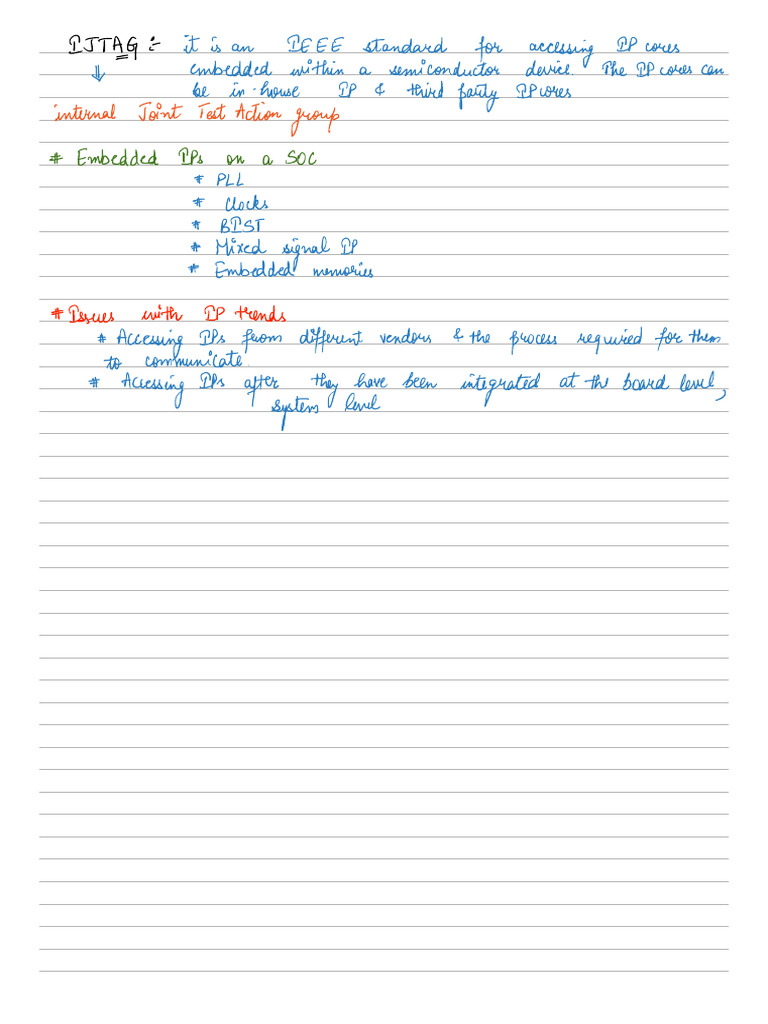 IJTAG :- it is an IEEE standard for accessing IP cores
⇓ embedded within a semiconductor device. The IP cores can
be in-house IP & third party IP cores
internal Joint Test Action group
# Embedded IPs on a SOC
* PLL
* Clocks
* BIST
* Mixed signal IP
* Embedded memories
* Issues with IP trends
* Accessing IPs from different vendors & the process required for them
to communicate.
* Accessing IPs after they have been integrated at the board level,
system level